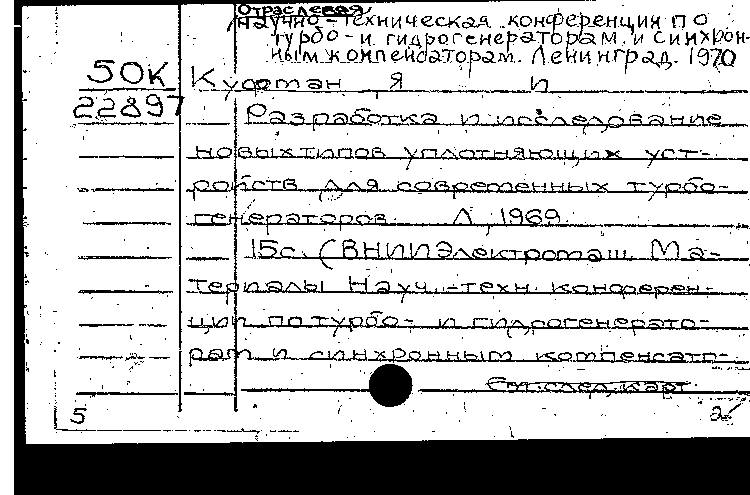 Отраслевая
научно-техническая конференция по
турбо- и гидрогенераторам и синхрон-
ным компенсаторам. Ленинград. 1970
50К Куфтан Я И
22897 Разработка и исследование
новых типов уплотняющих уст-
ройств для современных турбо-
генераторов. Л, 1969.
15с. (ВНИИЭлектромаш. Ма-
териалы Науч.-техн. конферен-
ции по турбо- и гидрогенерато-
рам и синхронным компенсато-
См.след.карт
5 2